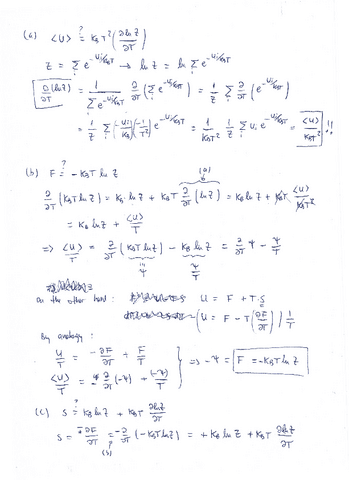 (a) <U> ?= K_B T² (∂lnZ/∂T)
Z = Σ_i e^{-U_i/K_BT} → ln Z = ln Σ_i e^{-U_i/K_BT}
∂/∂T (lnZ) = 1/(Σ e^{-U_i/K_BT}) ∂/∂T (Σ_i e^{-U_i/K_BT}) = 1/Z Σ_i ∂/∂T (e^{-U_i/K_BT})
= 1/Z Σ_i (-U_i/K_B)(-1/T²) e^{-U_i/K_BT} = 1/(K_BT²) 1/Z Σ_i U_i e^{-U_i/K_BT} = <U>/(K_BT²) !!
(b) F ?= -K_BT ln Z
(a)
∂/∂T (K_BT lnZ) = K_B ln Z + K_BT ∂/∂T (ln Z) = K_B ln Z + K_BT <U>/(K_BT²)
= K_B lnZ + <U>/T
⇒ <U>/T = ∂/∂T (K_BT lnZ) - K_B lnZ = ∂/∂T Ψ - Ψ/T
Ψ Ψ/T
On the other hand : U = F + T·S
(U = F - T(∂F/∂T)) 1/T
By analogy :
U/T = -∂F/∂T + F/T
<U>/T = -∂/∂T (-Ψ) + (-Ψ)/T
⇒ -Ψ = F = -K_BT ln Z
(c) S ?= K_B ln Z + K_BT ∂lnZ/∂T
S = -∂F/∂T = -∂/∂T (-K_BT lnZ) = + K_B ln Z + K_BT ∂lnZ/∂T
(b)